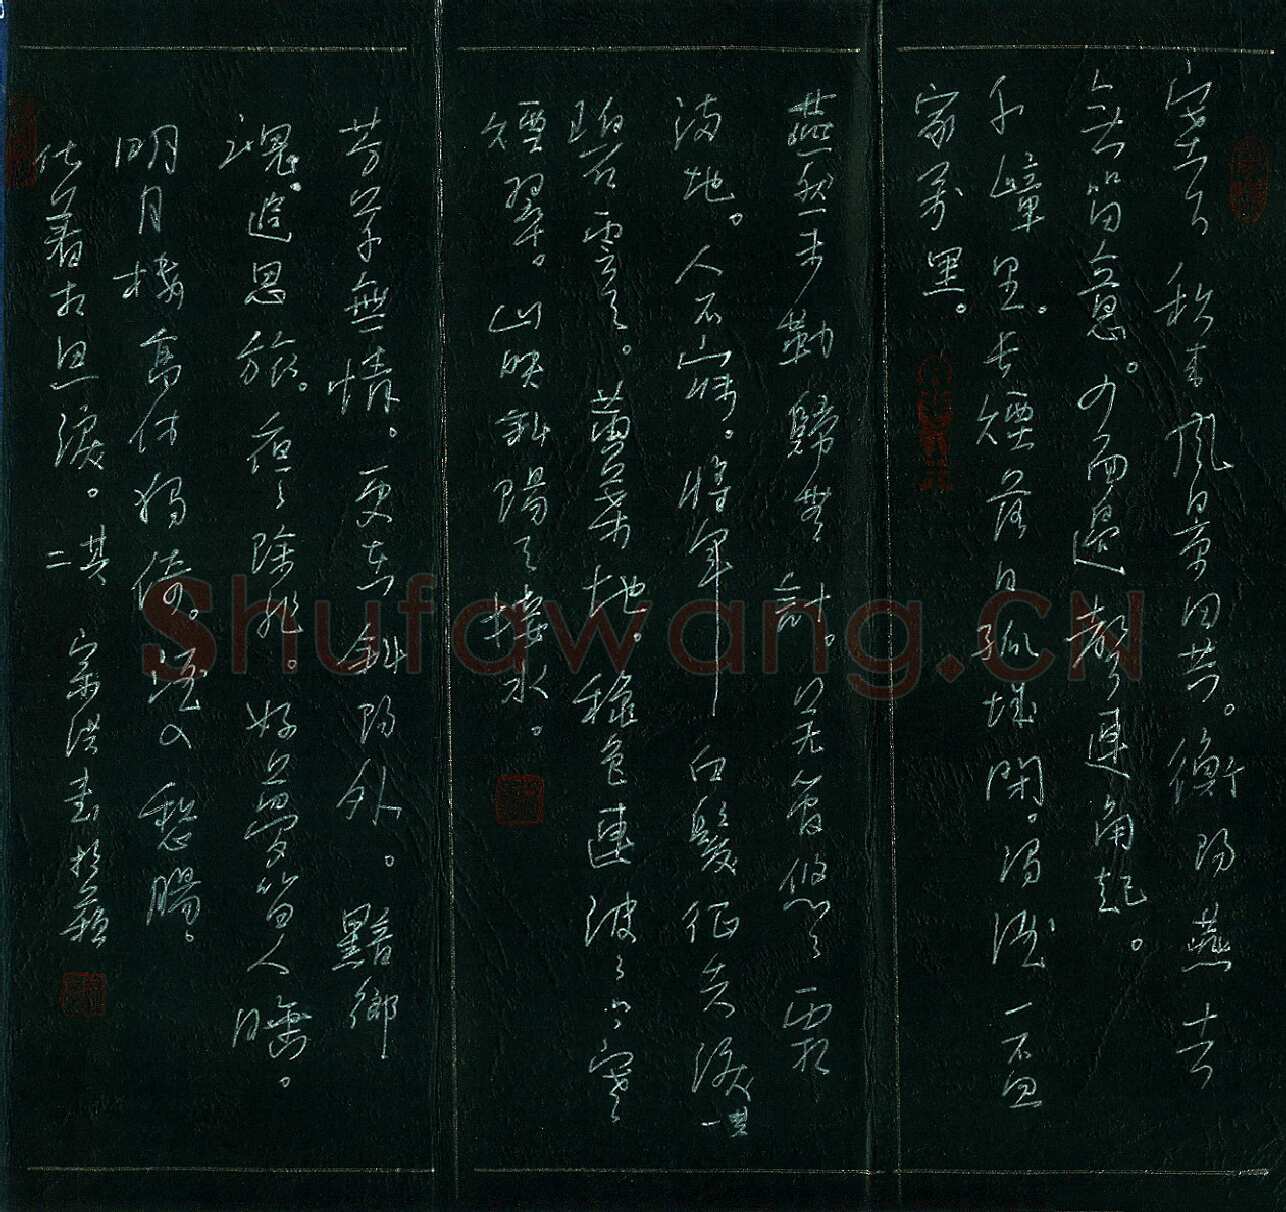 塞下秋来風景日异。衡陽燕去
無留意。四面邊聲連角起。
千嶂里。長煙落日孤城閉。濁酒一盃
家萬里。
燕然未勒歸無計。羌管悠々霜
滿地。人不寐。將軍白髮征夫淚 其一
碧雲天。黄葉地。穐色連波々上寒
煙翠。山映斜陽天接水。
芳草無情。更在斜陽外。黯鄉
魂。追思旅。夜々除非。好夢留人睡。
明月樓高休獨倚。酒入愁腸。
化着相思淚。其二 宗洪書於蘇
Shufawang.CN